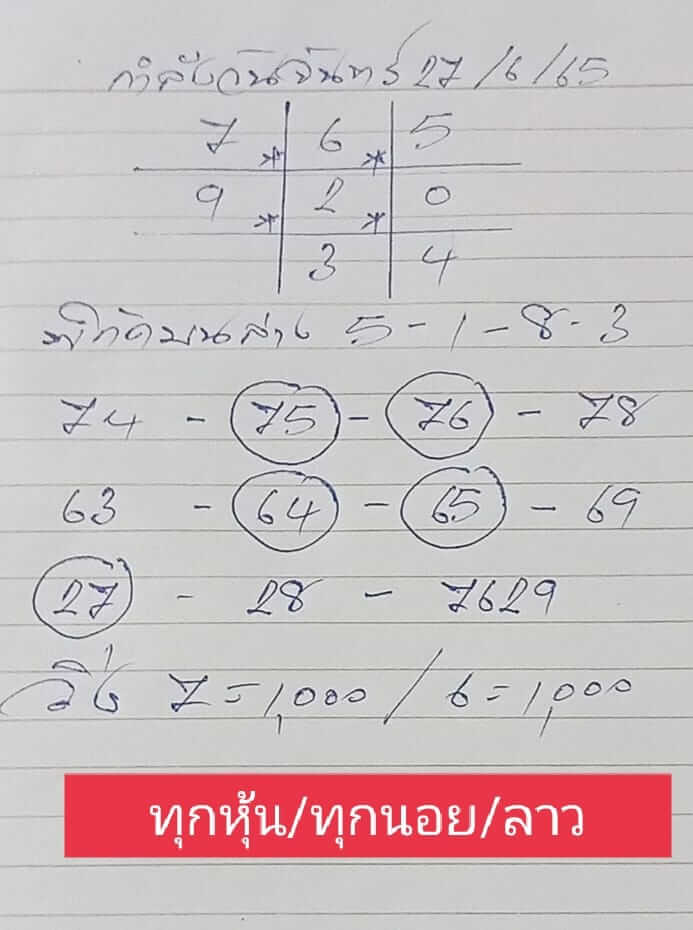 กำลังวันจันทร์ 27/6/65
7 * 6 * 5
9 * 2 * 0
3 4
พิกัดบนล่าง 5-1-8-3
74 - 75 - 76 - 78
63 - 64 - 65 - 69
27 - 28 - 7629
วิ่ง 7=1,000 / 6=1,000
ทุกหุ้น/ทุกนอย/ลาว